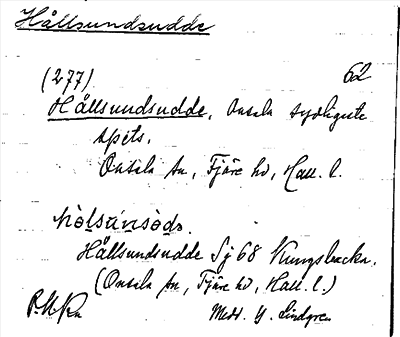 Hållsundsudde
(277) 62
Hållsundsudde, Onsala sydligaste
spets.
Onsala sn, Fjäre hd, Hall. l.
hòlsúnsòdə.
Hållsundsudde Sj 68 Kungsbacka.
(Onsala sn, Fjäre hd, Hall. l.)
Medd. Y. Lindgren